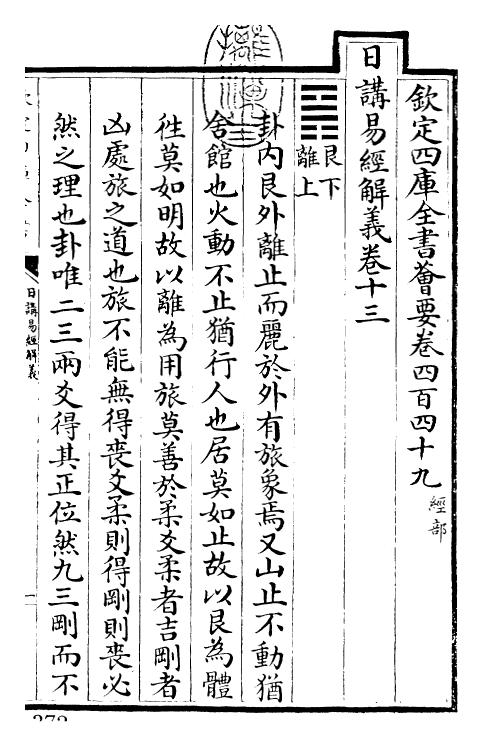 欽定四庫全書薈要卷四百四十九 經部
日講易經解義卷十三
艮下
離上
卦內艮外離止而麗於外有旅象焉又山止不動猶
舍館也火動不止猶行人也居莫如止故以艮為體
徃莫如明故以離為用旅莫善於柔爻柔者吉剛者
凶處旅之道也旅不能無得喪爻柔則得剛則喪必
然之理也卦唯二三兩爻得其正位然九三剛而不
日講易經解義
一